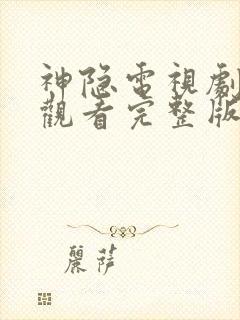 神隐電視劇
觀看完整版
麗萨